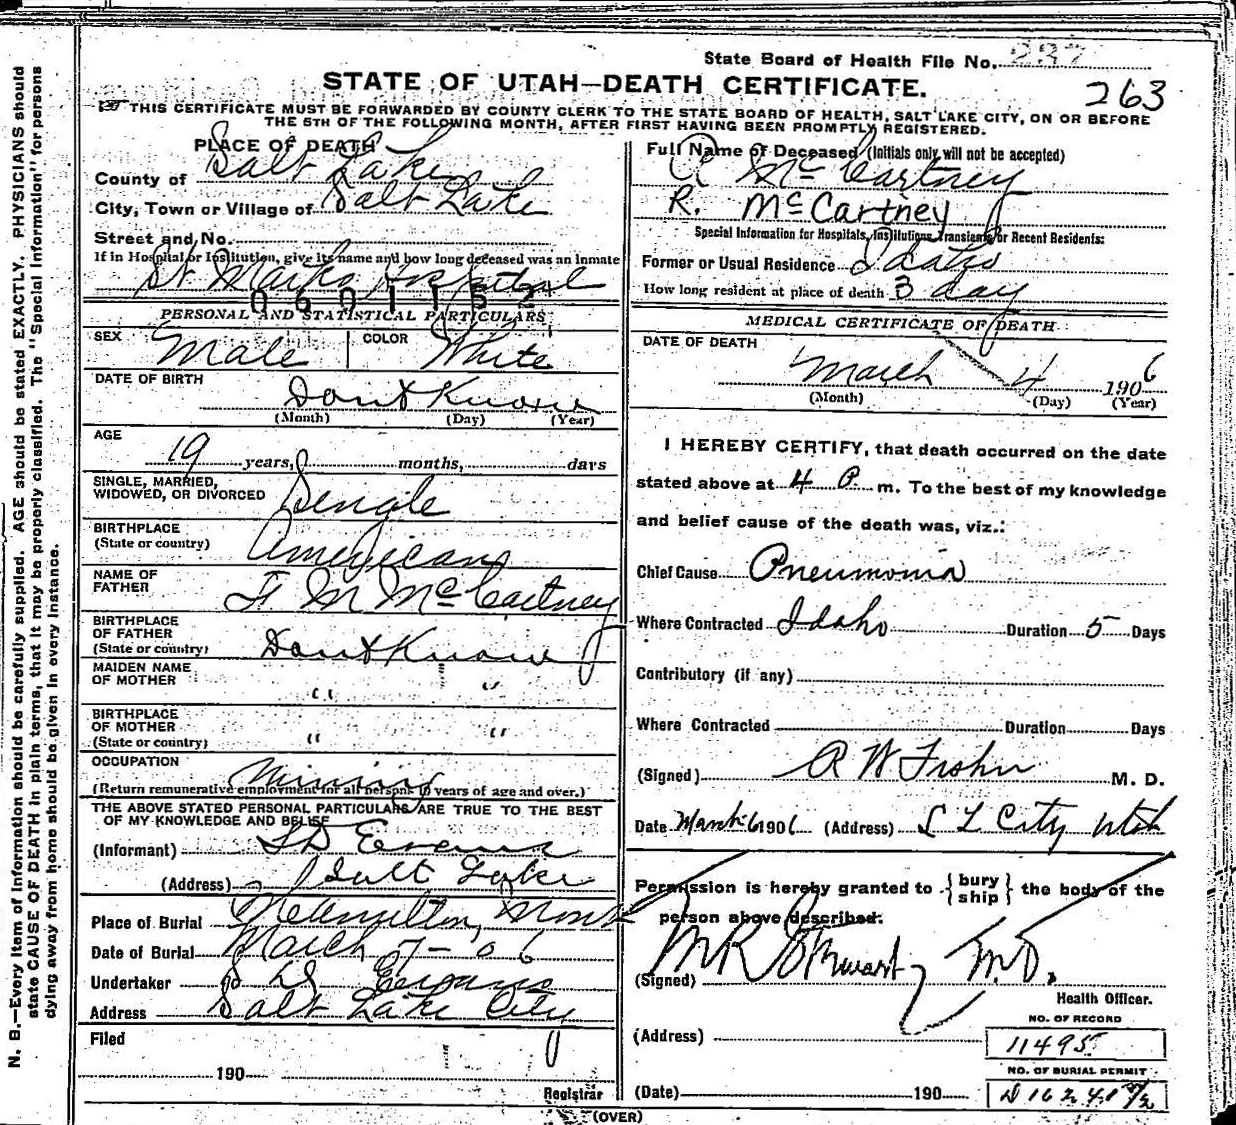 State Board of Health File No. 237
263
STATE OF UTAH—DEATH CERTIFICATE.
THIS CERTIFICATE MUST BE FORWARDED BY COUNTY CLERK TO THE STATE BOARD OF HEALTH, SALT LAKE CITY, ON OR BEFORE
THE 5TH OF THE FOLLOWING MONTH, AFTER FIRST HAVING BEEN PROMPTLY REGISTERED.
PLACE OF DEATH
County of Salt Lake
City, Town or Village of Salt Lake
Street and No.
If in Hospital or Institution, give its name and how long deceased was an inmate
St Marks Hospital
0601152
PERSONAL AND STATISTICAL PARTICULARS
SEX Male COLOR White
DATE OF BIRTH Dont Know
(Month) (Day) (Year)
AGE
19 years, months, days
SINGLE, MARRIED,
WIDOWED, OR DIVORCED Single
BIRTHPLACE
(State or country) American
NAME OF
FATHER F M McCartney
BIRTHPLACE
OF FATHER
(State or country) Dont Know
MAIDEN NAME
OF MOTHER " "
BIRTHPLACE
OF MOTHER
(State or country) " "
OCCUPATION Mining
(Return remunerative employment for all persons 10 years of age and over.)
THE ABOVE STATED PERSONAL PARTICULARS ARE TRUE TO THE BEST
OF MY KNOWLEDGE AND BELIEF
(Informant) S D Evans
(Address) Salt Lake
Place of Burial Hamilton, Mont
Date of Burial March 7-06
Undertaker S D Evans
Address Salt Lake City
Filed
190
Registrar
Full Name of Deceased (Initials only will not be accepted)
R McCartney
R. McCartney
Special Information for Hospitals, Institutions, Transients or Recent Residents:
Former or Usual Residence Idaho
How long resident at place of death 3 day
MEDICAL CERTIFICATE OF DEATH
DATE OF DEATH
March 4 1906
(Month) (Day) (Year)
I HEREBY CERTIFY, that death occurred on the date
stated above at 4 P. m. To the best of my knowledge
and belief cause of the death was, viz.:
Chief Cause Pneumonia
Where Contracted Idaho Duration 5 Days
Contributory (if any)
Where Contracted Duration Days
(Signed) R W M. D.
Date March 6 1906 (Address) S L City Utah
Permission is hereby granted to {bury ship} the body of the
person above described.
(Signed) M R Stewart M.D.
Health Officer.
(Address)
NO. OF RECORD
11495
NO. OF BURIAL PERMIT
(Date) 190
(OVER)
N. B.—Every item of information should be carefully supplied. AGE should be stated EXACTLY. PHYSICIANS should
state CAUSE OF DEATH in plain terms, that it may be properly classified. The "Special Information" for persons
dying away from home should be given in every instance.